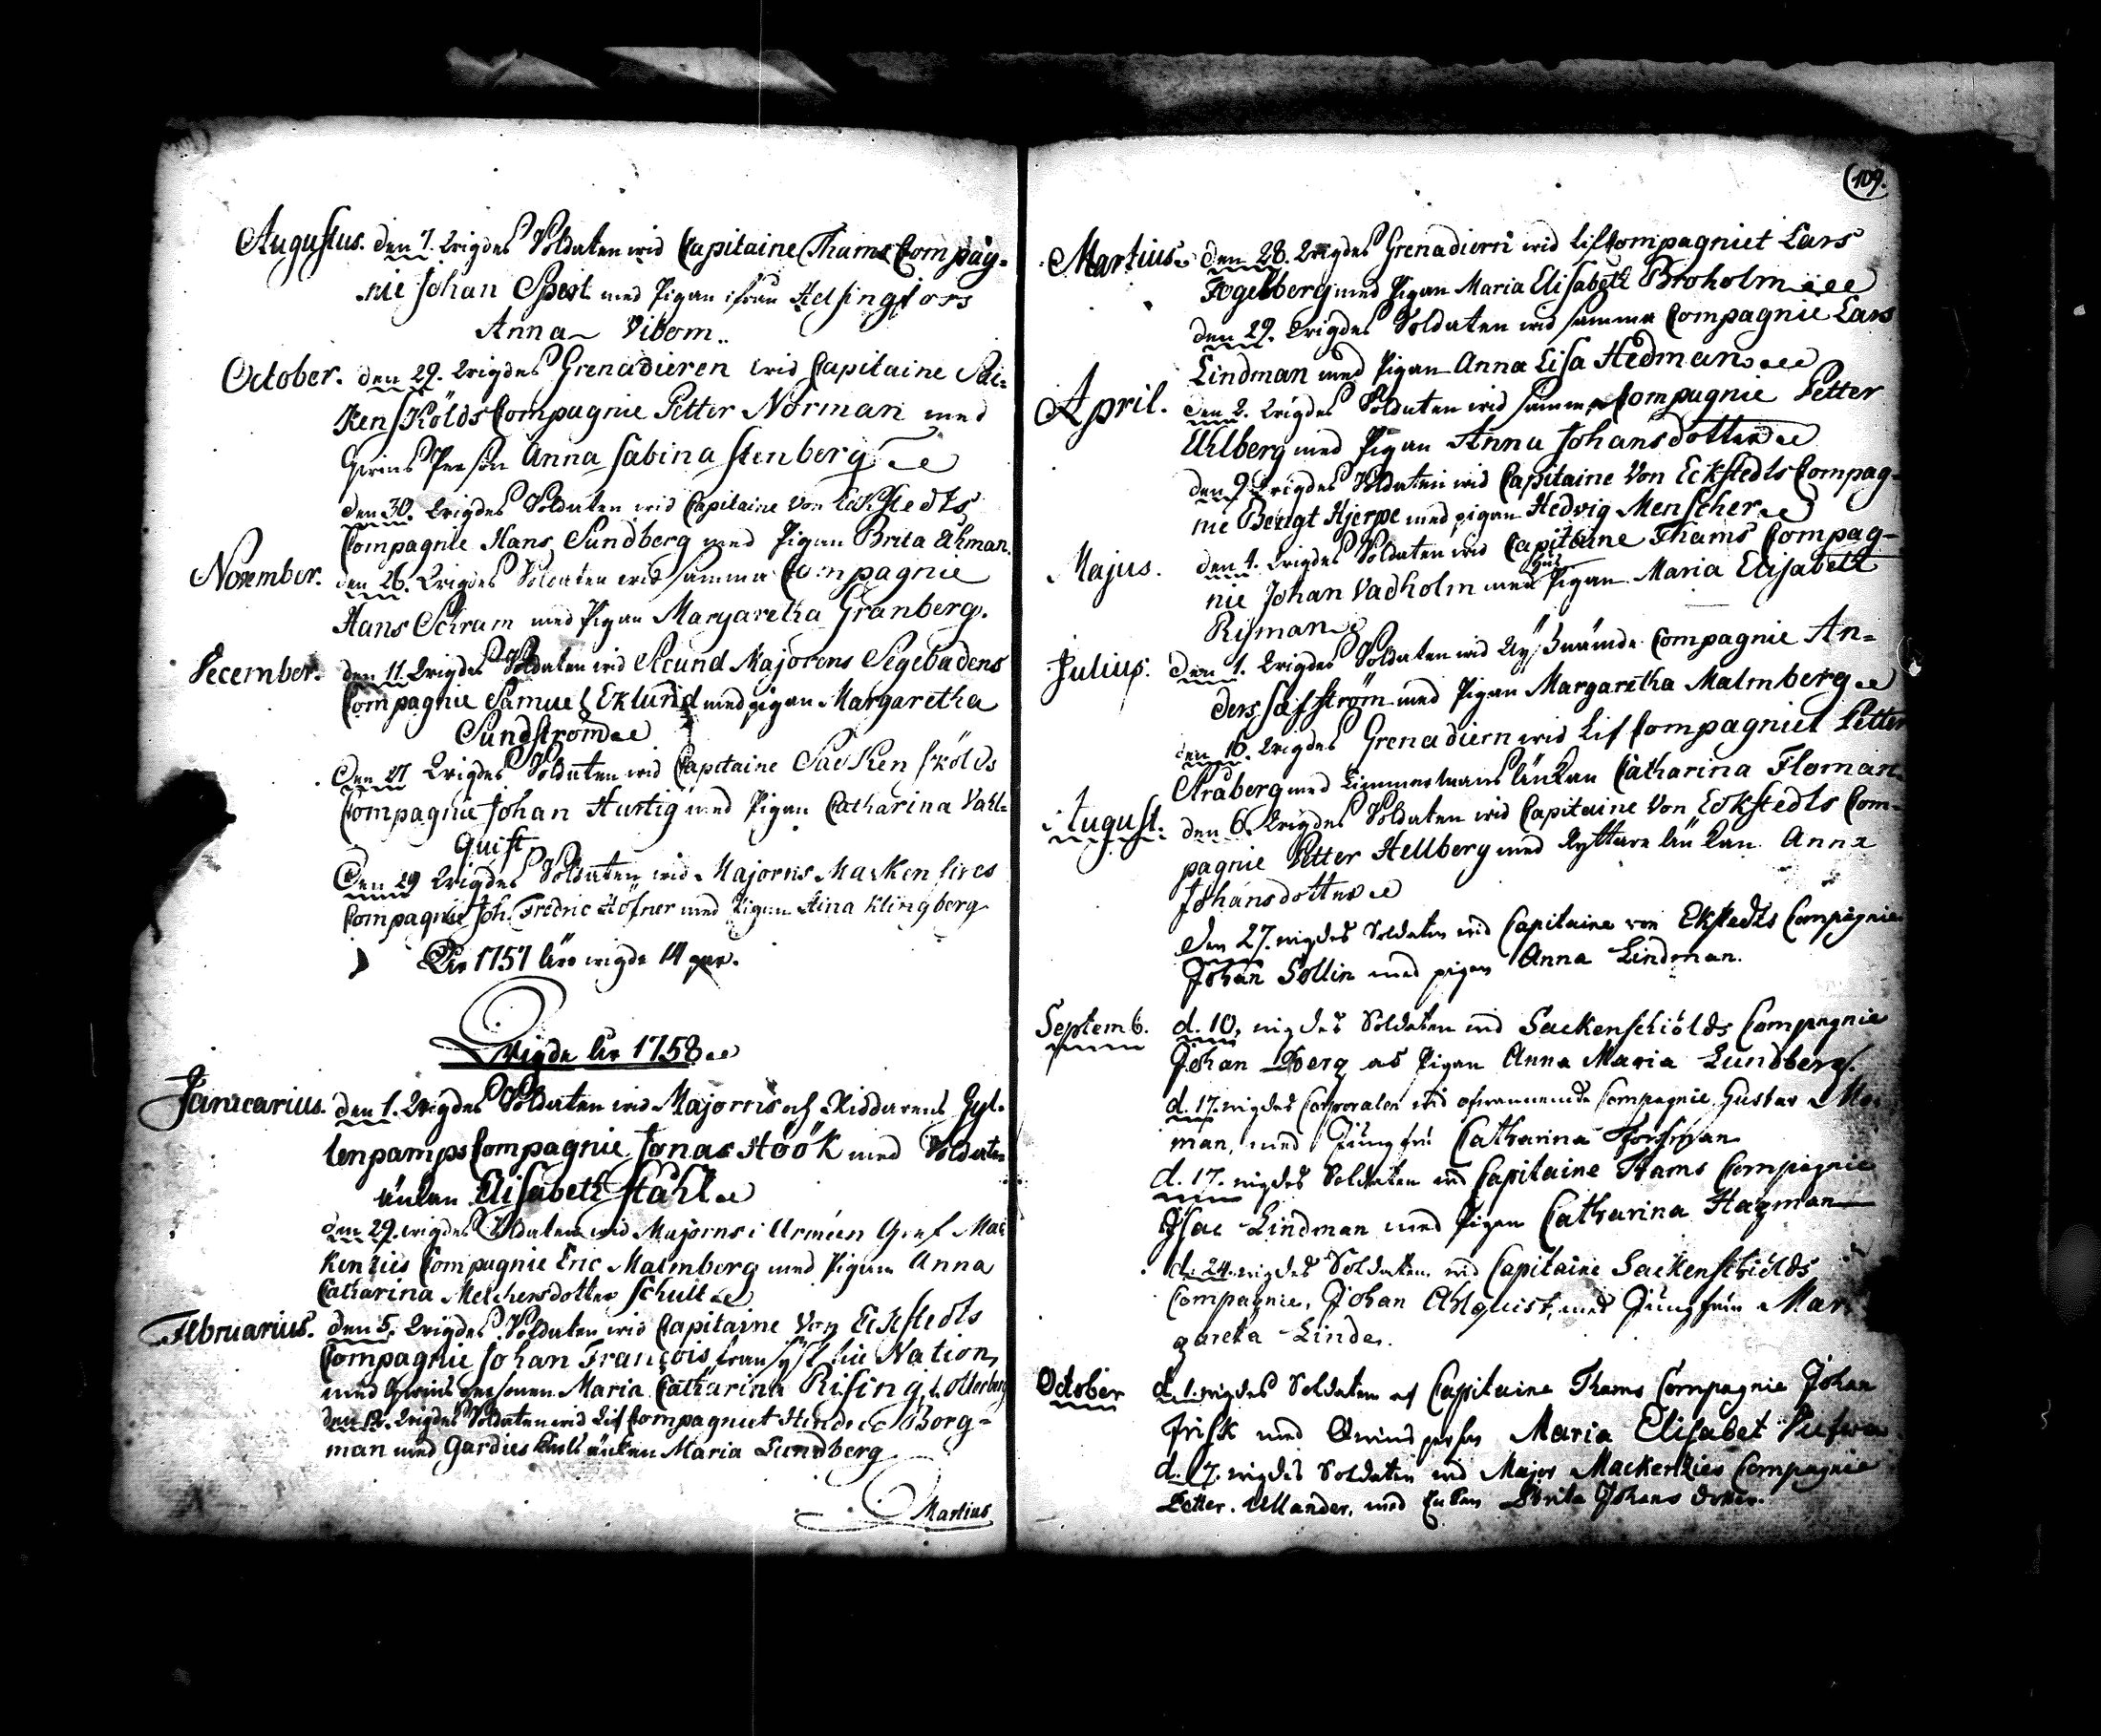 Augustus. den 7. Wigdes Soldaten wid Capitaine Thams Compag-
nie Johan Spest med Pigan ifrån Helsingfors
Anna Vibom..
October. den 29. Wigdes Grenadieren wid Capitaine Sac-
kenskölds Compagnie Petter Norman med
Qwins Person Anna Sabina Stenberg
den 30. Wigdes Soldaten wid Capitaine Von Eckstedts
Compagnie Hans Sundberg med Pigan Brita Åhman.
November. den 26. Wigdes Soldaten wid samma Compagnie
Hans Schram med Pigan Margaretha Granberg.
December. den 11. Wigdes Soldaten wid Secund Majorens Segebadens
Compagnie Samuel Eklund med pigan Margaretha
Sundström
Den 27 Wigdes Soldaten wid Capitaine Sackenskölds
Compagnie Johan Hurtig med Pigan Catharina Vahl-
quist
Den 29 Wigdes Soldaten wid Majorns Mackensies
Compagnie Joh. Fredric Höfner med Pigan Stina Klingberg
År 1757 äro wigde 14 par.
Wigde År 1758
Januarius. den 1. Wigdes Soldaten wid Majorns och Riddarens Gyl-
lenpamps Compagnie Jonas Höök med Soldate
änkan Elisabeth Ståhl
den 29. wigdes Soldaten wid Majorns i Arméen Gref Mac
Kenzies Compagnie Eric Malmberg med Pigan Anna
Catharina Melchersdotter Schult
Februarius. den 5. Wigdes Soldaten wid Capitaine Von Eckstedts
Compagnie Johan François, fransyskl Nation,
med Qwins personen Maria Catharina Rising
den 12. Wigdes Soldaten wid Lif Compagniet Hindric Borg-
man med änkan Maria Lundberg
Martius
109.
Martius. den 28. Wigdes Grenadieren wid Lif Compagniet Lars
Fogelberg med Pigan Maria Elisabeth Broholm
den 29. Wigdes Soldaten wid samma Compagnie Lars
Lindman med Pigan Anna Lisa Hedman
April. den 2. Wigdes Soldaten wid samma Compagnie Petter
Uhlberg med Pigan Anna Johansdotter
den 9 Wigdes Soldaten wid Capitaine Von Eckstedts Compag-
nie Bengt Hjerpe med pigan Hedvig Menscher
Majus. den 1. Wigdes Soldaten wid Capitaine Thams Compag-
nie Johan Vadholm med Pigan Maria Elisabeth
Risman
Julius. den 1. Wigdes Soldaten wid Compagnie An-
ders Säfström med Pigan Margaretha Malmberg
den 16. Wigdes Grenadiern wid Lif Compagniet Petter
Stråberg med Timmermans änkan Catharina Floman
August. den 6. Wigdes Soldaten wid Capitaine Von Eckstedts Com-
pagnie Petter Hellberg med Ryttare änkan Anna
Johansdotter
den 27. wigdes Soldaten wid Capitaine von Ekstedts Compagnie
Johan Sollin med pigan Anna Lindman.
Septemb. d. 10. wigdes Soldaten wid Sackenschiölds Compagnie
Johan Berg as Pigan Anna Maria Lundberg.
d. 17. wigdes Corporalen wid ofwannemde Compagnie, Gustav
man, med Jungfru Catharina Forsman
d. 17. wigdes Soldaten wid Capitaine Thams Compagnie
Isac Lindman med Pigan Catharina Hagman
d. 24. wigdes Soldaten wid Capitaine Sackenschiölds
Compagnie, Johan Ahlquist, med Jungfrun Mar
gareta Linde.
October d. 1. wigdes Soldaten af Capitaine Thams Compagnie Johan
Frisk med Qwinsperson Maria Elisabet
d. 17. wigdes Soldaten wid Major Mackenzies Compagnie
Petter Ullander, med Enkan Brita Johans dotter.